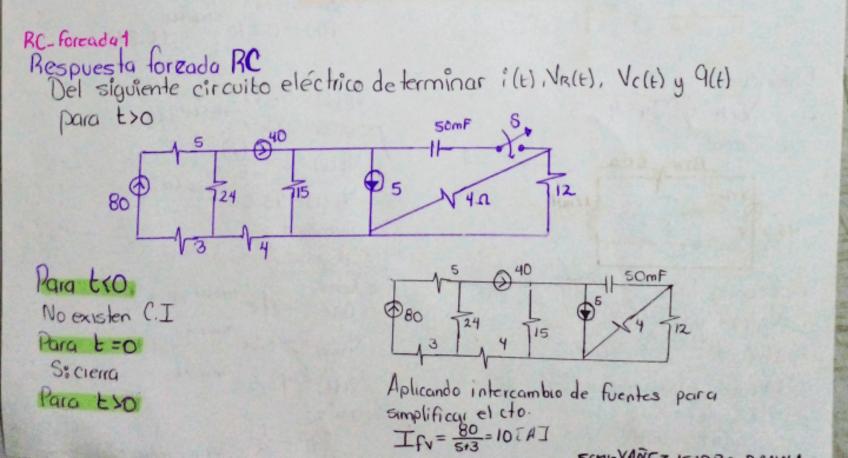 RC-forzada1
Respuesta forzada RC
Del siguiente circuito eléctrico determinar i(t), VR(t), Vc(t) y q(t)
para t>0
50mF S
5 40
80 24 15 5 4Ω 12
3 4
Para t<0
No existen C.I
Para t=0
S: cierra
Para t>0
5 40 50mF
80 24 15 5 4 12
3 4
Aplicando intercambio de fuentes para
simplificar el cto.
Ifv = 80/5+3 = 10 [A]